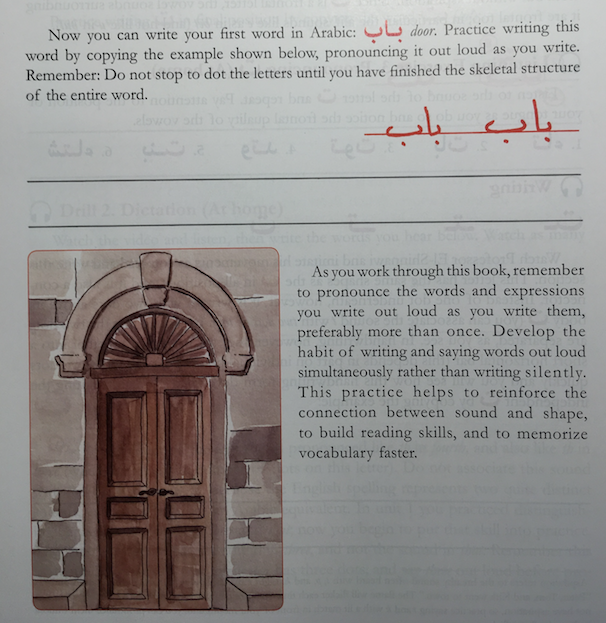 Now you can write your first word in Arabic: باب door. Practice writing this
word by copying the example shown below, pronouncing it out loud as you write.
Remember: Do not stop to dot the letters until you have finished the skeletal structure
of the entire word.
باب باب
As you work through this book, remember
to pronounce the words and expressions
you write out loud as you write them,
preferably more than once. Develop the
habit of writing and saying words out loud
simultaneously rather than writing silently.
This practice helps to reinforce the
connection between sound and shape,
to build reading skills, and to memorize
vocabulary faster.